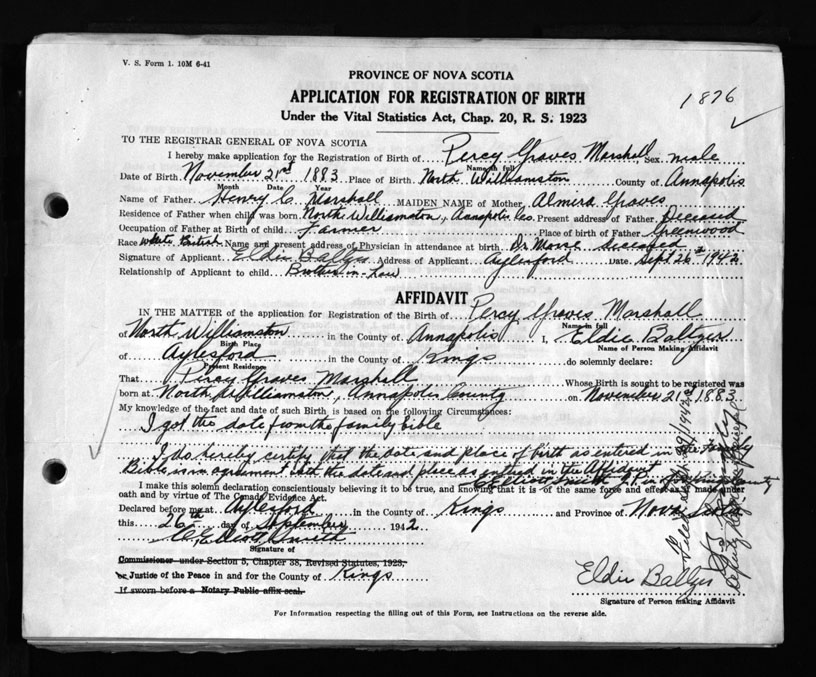 V. S. Form 1. 10M 6-41
PROVINCE OF NOVA SCOTIA
APPLICATION FOR REGISTRATION OF BIRTH
1876
Under the Vital Statistics Act, Chap. 20, R. S. 1923
TO THE REGISTRAR GENERAL OF NOVA SCOTIA
I hereby make application for the Registration of Birth of Percy Graves Marshall, Sex male
Name in full
Date of Birth November 21st 1883 Place of Birth North Williamston County of Annapolis
Month Date Year
Name of Father Henry C. Marshall MAIDEN NAME of Mother, Almira Graves
Residence of Father when child was born North Williamston, Annapolis Co. Present address of Father Deceased
Occupation of Father at Birth of child Farmer Place of birth of Father Greenwood
Race white British Name and present address of Physician in attendance at birth Dr Morse deceased
Signature of Applicant Eldir Baltzer Address of Applicant Aylesford Date Sept 26th 1942
Relationship of Applicant to child Brother-in-Law
AFFIDAVIT
IN THE MATTER of the application for Registration of the Birth of Percy Graves Marshall
Name in full
of North Williamston in the County of Annapolis I, Eldie Baltzer
Birth Place Name of Person Making Affidavit
of Aylesford in the County of Kings do solemnly declare:
Present Residence
That Percy Graves Marshall Whose Birth is sought to be registered was
born at North Williamston, Annapolis County on November 21st 1883
My knowledge of the fact and date of such Birth is based on the following Circumstances:
I got the date from the family bible
I do hereby certify that the date and place of birth as entered in the Family
Bible is in agreement with the date and place as entered in the Affidavit
C. Elliott Smith J.P. in for Kings County
I make this solemn declaration conscientiously believing it to be true, and knowing that it is of the same force and effect as if made under
oath and by virtue of The Canada Evidence Act.
Declared before me at Aylesford in the County of Kings and Province of Nova Scotia
this 26th day of September 1942
C. Elliott Smith
Signature of
Commissioner under Section 5, Chapter 38, Revised Statutes, 1923,
or Justice of the Peace in and for the County of Kings
If sworn before a Notary Public affix seal.
Eldir Baltzer
Signature of Person making Affidavit
Deputy Registrar General
For Information respecting the filling out of this Form, see Instructions on the reverse side.